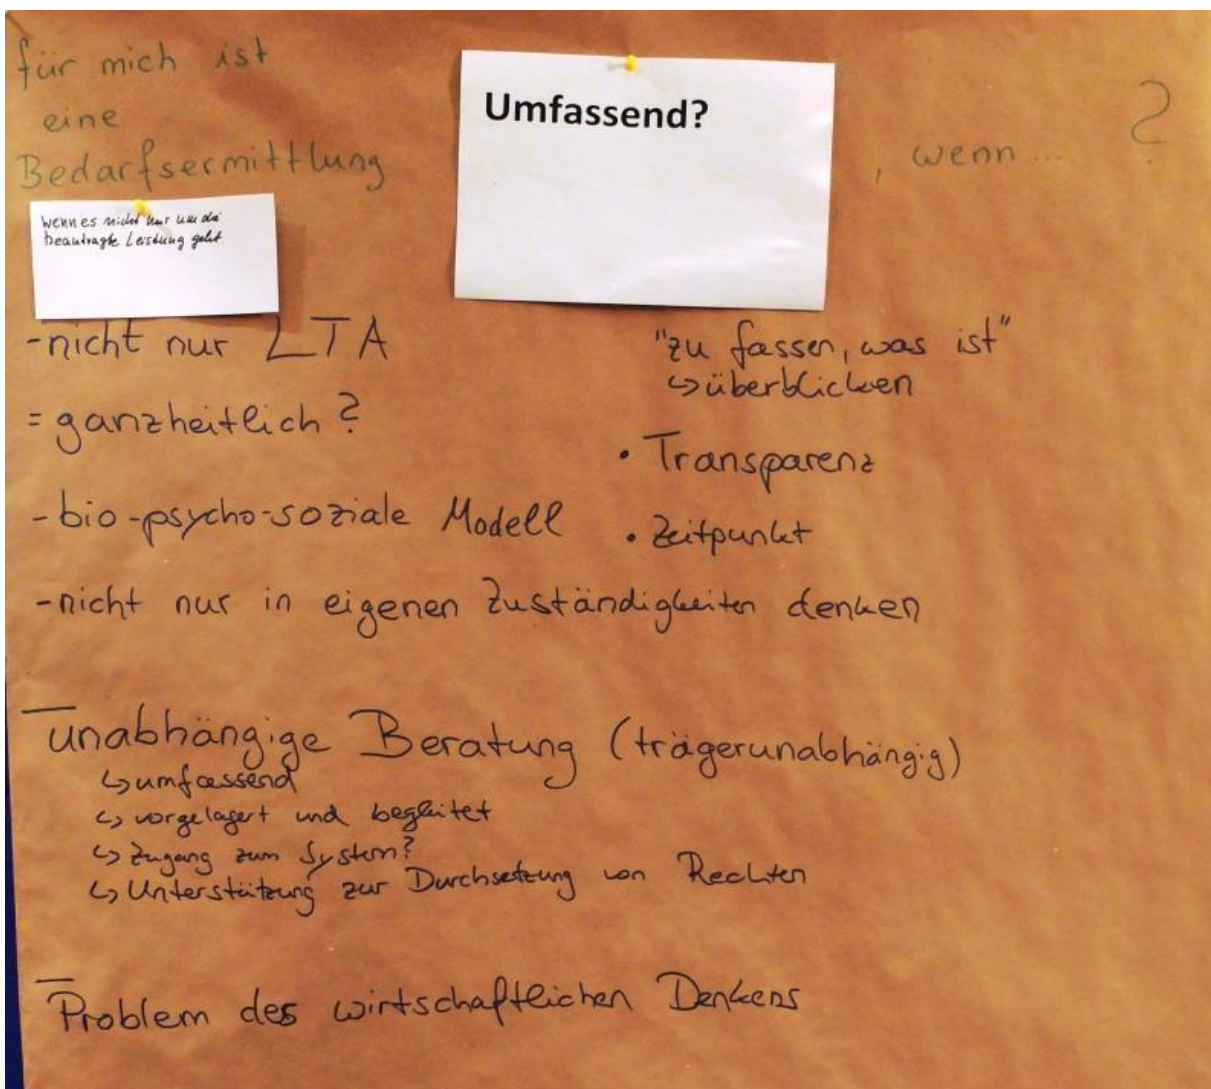 für mich ist
eine
Bedarfsermittlung
Umfassend?
, wenn ... ?
wenn es nicht nur um die
beantragte Leistung geht
-nicht nur LTA
= ganzheitlich?
-bio-psycho-soziale Modell
-nicht nur in eigenen Zuständigkeiten denken
"zu fassen, was ist"
↳ überblicken
• Transparenz
• Zeitpunkt
- unabhängige Beratung (trägerunabhängig)
↳ umfassend
↳ vorgelagert und begleitet
↳ Zugang zum System?
↳ Unterstützung zur Durchsetzung von Rechten
- Problem des wirtschaftlichen Denkens